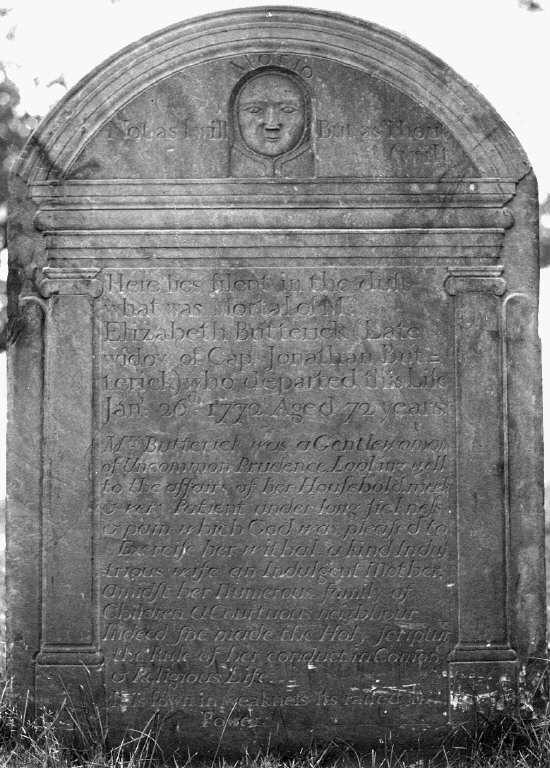 MOTTO
Not as I will But as Thou
wilt
Here lies silent in the dust
what was Mortal of Mrs
Elizabeth Butterick (Late
widow of Cap. Jonathan But=
terick) who departed this Life
Jan. 26th 1772 Aged 72 years.
Mrs Butterick was a Gentlewoman
of Uncommon Prudence Looking well
to the affairs of her Household, meek
& very Patient under long sickness
& pain which God was pleased to
Exercise her withal, a kind Indus
trious wife an Indulgent Mother,
amidst her numerous family of
Children. A Courtuous neighbour
Indeed she made the Holy Scriptur
the Rule of her conduct in Comon
& Religious Life
Tis sown in weakness its raised in
Power.